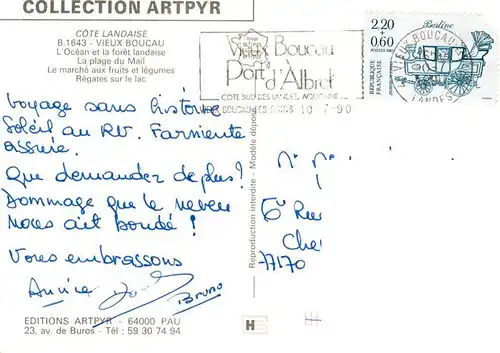 COLLECTION ARTPYR
CÔTE LANDAISE
B.1643 - VIEUX BOUCAU
L'Océan et la forêt landaise
La plage du Mail
Le marché aux fruits et légumes
Régates sur le lac
Voyage sans histoire
Soleil au RV. Farniente
assurée.
Que demander de plus?
Dommage que le neveu
nous ait boudé !
Vous embrassons
Annie
Bruno
EDITIONS ARTPYR - 64000 PAU
23, av. de Buros - Tél : 59 30 74 94
Reproduction interdite - Modèle déposé
Vieux Boucau
Port d'Albret
COTE SUD DES LANDES, AQUITAINE
10 -7-90
VIEUX BOUCAU
LANDES
Berline
2,20
+0,60
REPUBLIQUE FRANÇAISE
6 Rue
Che
77170
H